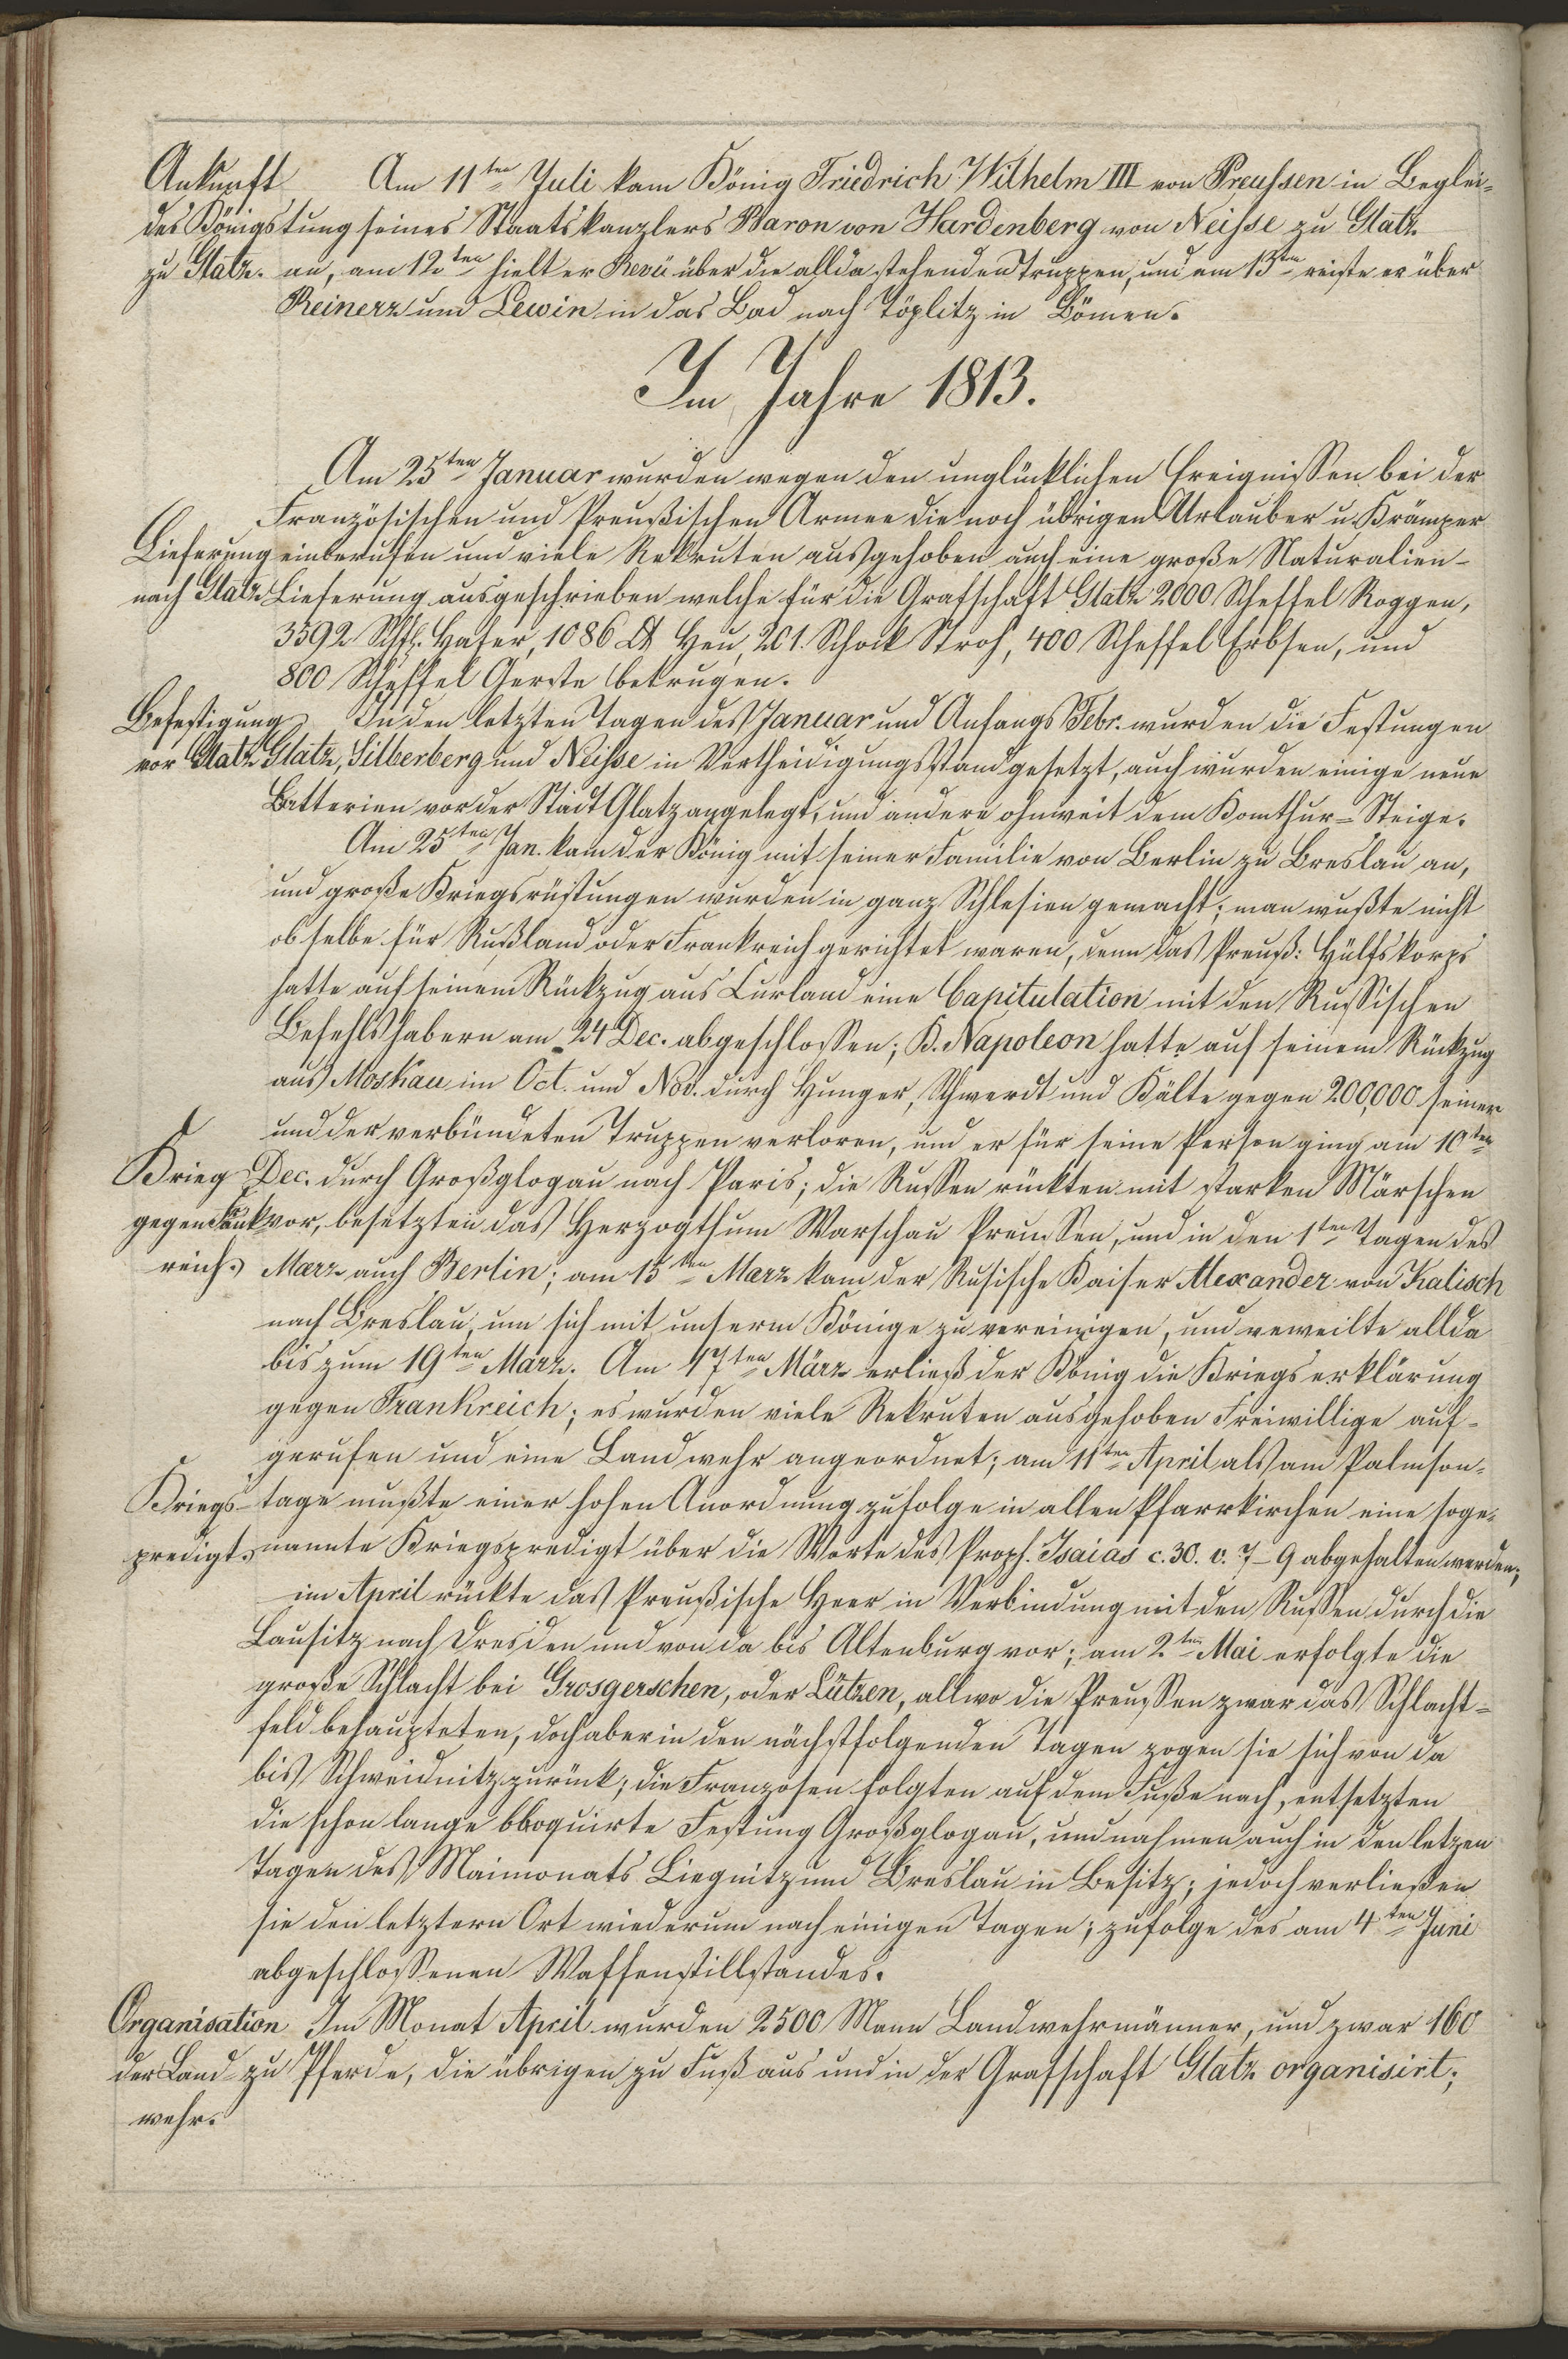 Ankunft Am 11ten Juli kam König Friedrich Wilhelm III von Preussen in Beglei-
des Königs tung seines Staatskanzlers Baron von Hardenberg von Neisse zu Glatz
zu Glatz. an, am 12ten hielt er Revü über die allda stehenden Truppen, und am 13ten reiste er über
Reinerz und Lewin in das Bad nach Töplitz in Bömen.
Im Jahre 1813.
Am 25ten Januar wurden wegen den unglücklichen Ereignissen bei der
Französischen und Preußischen Armee die noch übrigen Urlauber u. Krämper
Lieferung einberufen und viele Rekruten ausgehoben auch eine große Naturalien-
nach Glatz. Lieferung ausgeschrieben welche für die Grafschaft Glatz 2000 Scheffel Roggen,
3592 Schfl. Hafer, 1086 Ct Heu, 201. Schock Stroh, 400 Scheffel Erbsen, und
800 Scheffel Gerste betrugen.
Befestigung In den letzten Tagen des Januar und Anfangs Febr. wurden die Festungen
vor Glatz Glatz, Silberberg und Neisse in Vertheidigungsstand gesetzt, auch wurden einige neue
Batterien vor der Stadt Glatz angelegt, und andere ohnweit dem Komthur-Steige.
Am 25ten Jan. kam der König mit seiner Familie von Berlin zu Breslau an,
und große Kriegsrüstungen wurden in ganz Schlesien gemacht; man wußte nicht
ob selbe für Rußland oder Frankreich gerichtet waren, denn das Preuß: Hülfskorps
hatte auf seinem Rückzug aus Curland eine Capitulation mit den Russischen
Befehlshabern am 24 Dec. abgeschlossen; K. Napoleon hatte auf seinem Rückzug
aus Moskau im Oct. und Nov. durch Hunger, Schwerdt und Kälte gegen 200,000 seiner
und der verbündeten Truppen verloren, und er für seine Person ging am 10ten
Krieg Dec. durch Großglogau nach Paris; die Russen rückten mit starken Märschen
gegen Frank vor, besetzten das Herzogthum Warschau Preussen, und in den 1ten Tagen des
reich. Marz auch Berlin; am 15ten Marz kam der Rusische Kaiser Alexander von Kalisch
nach Breslau, um sich mit unserm Könige zu vereinigen, und verweilte allda
bis zum 19ten März. Am 17ten März erließ der König die Kriegserklärung
gegen Frankreich; es wurden viele Rekruten ausgehoben Freiwillige auf-
gerufen und eine Landwehr angeordnet; am 11ten April als am Palmson-
Kriegs- tage mußte einer hohen Anordnung zufolge in allen Pfarrkirchen eine soge-
predigt. nannte Kriegspredigt über die Worte des Proph. Isaias c. 30. v. 7-9 abgehalten werden;
im April rückte das Preußische Heer in Verbindung mit den Russen durch die
Lausitz nach Dresden und von da bis Altenburg vor; am 2ten Mai erfolgte die
große Schlacht bei Grosgerschen, oder Lützen, allwo die Preussen zwar das Schlacht-
feld behaupteten, doch aber in den nächstfolgenden Tagen zogen sie sich von da
bis Schweidnitz zurück; die Franzosen folgten auf dem Fuße nach, entsetzten
die schon lange bloquirte Festung Großglogau, und nahmen auch in den letzen
Tagen des Maimonats Liegnitz und Breslau in Besitz; jedoch verließen
sie den letztern Ort wiederum nach einigen Tagen; zufolge des am 4ten Juni
abgeschlossenen Waffenstillstandes.
Organisation Im Monat April wurden 2500 Mann Landwehrmänner, und zwar 160
der Land- zu Pferde, die übrigen zu Fuß aus und in der Grafschaft Glatz organisirt;
wehr.